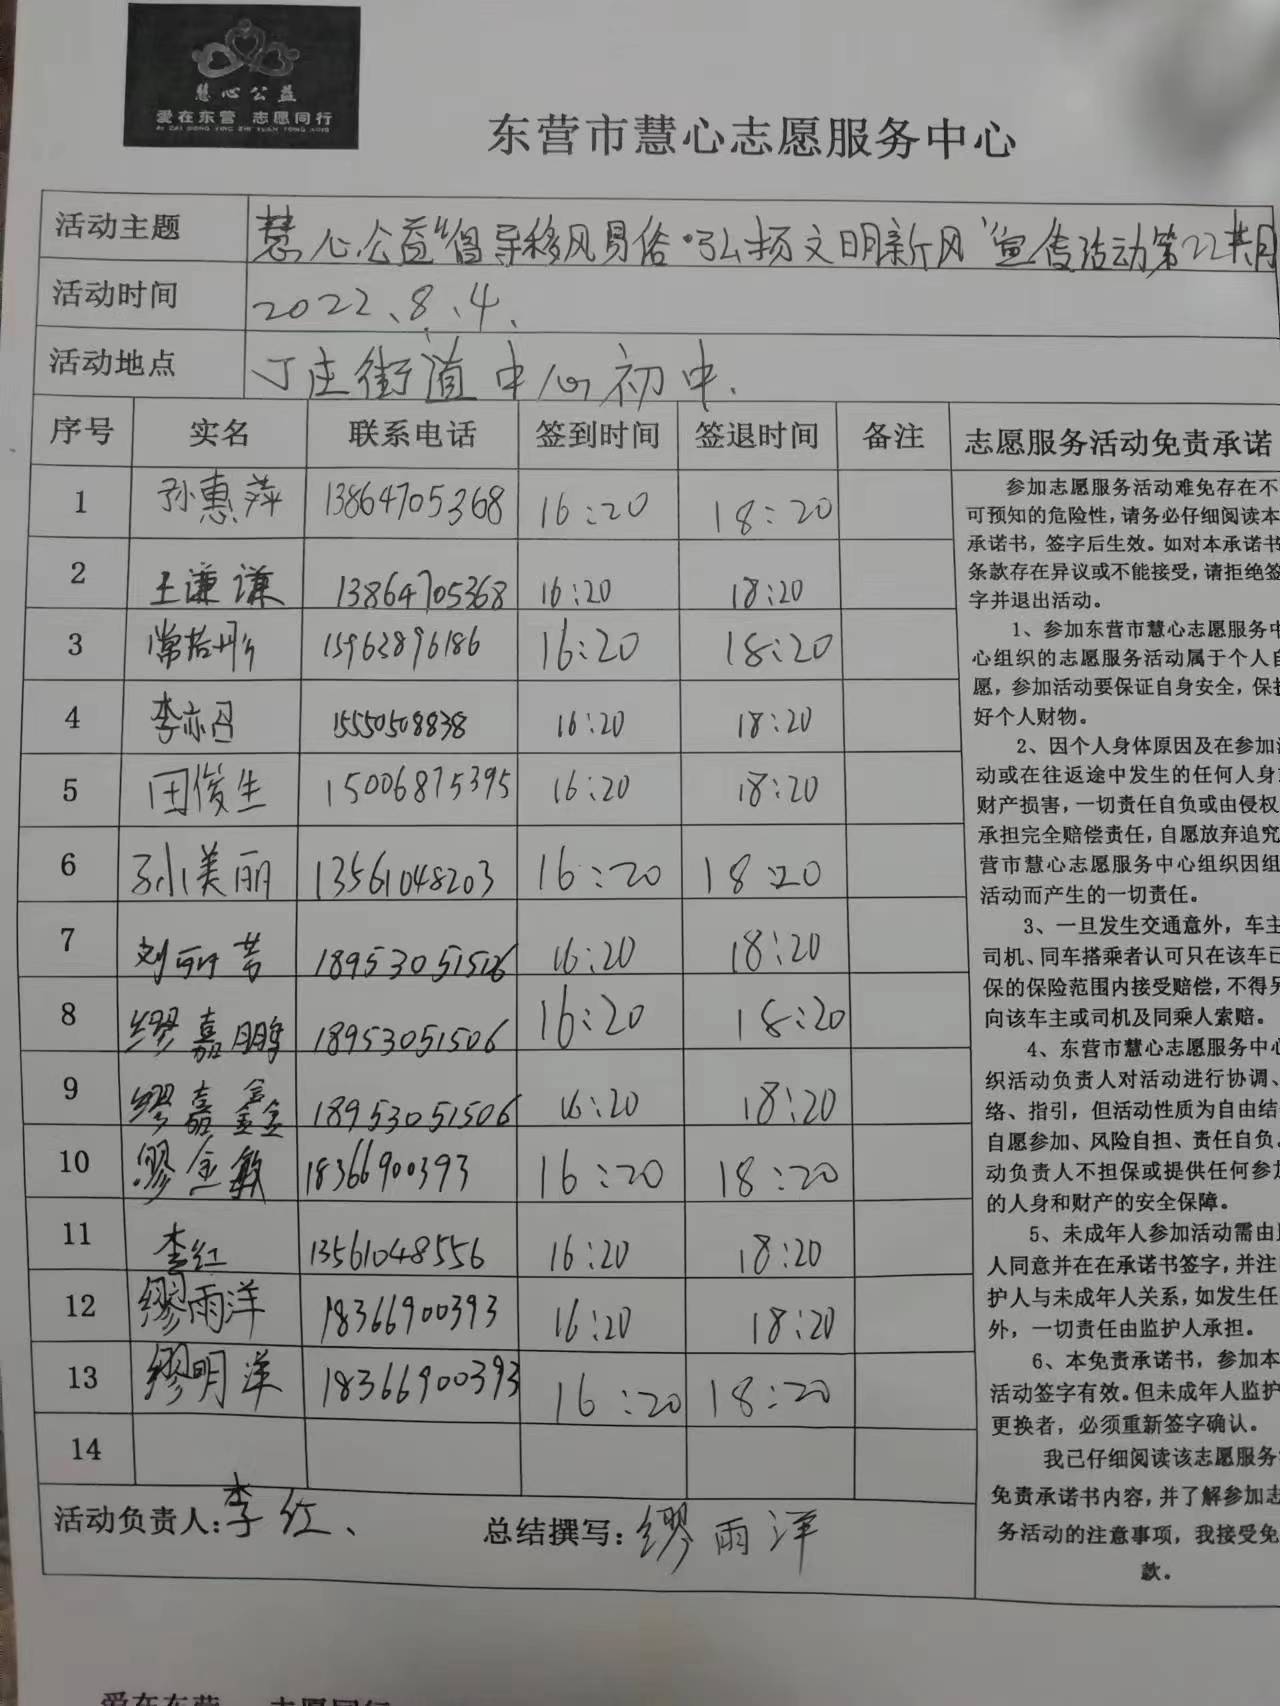 慧心公益
爱在东营 志愿同行
AI ZAI DONG YING ZHI YUAN TONG XING
东营市慧心志愿服务中心
活动主题 慧心公益"倡导移风易俗·弘扬文明新风"宣传活动第22期
活动时间 2022、8、4、
活动地点 丁庄街道中心初中.
序号 实名 联系电话 签到时间 签退时间 备注
1 孙惠萍 13864705368 16:20 18:20
2 王谦谦 13864705368 16:20 18:20
3 常 15963896186 16:20 18:20
4 李亦 15550508838 16:20 18:20
5 田俊生 15006875395 16:20 18:20
6 孙美丽 13561048203 16:20 18:20
7 刘 芳 18953051506 16:20 18:20
8 缪嘉鹏 18953051506 16:20 18:20
9 缪嘉鑫 18953051506 16:20 18:20
10 缪金敏 18366900393 16:20 18:20
11 李红 13561048556 16:20 18:20
12 缪雨洋 18366900393 16:20 18:20
13 缪明洋 18366900393 16:20 18:20
14
活动负责人:李红、 总结撰写:缪雨洋
志愿服务活动免责承诺
参加志愿服务活动难免存在不
可预知的危险性,请务必仔细阅读本
承诺书,签字后生效。如对本承诺书
条款存在异议或不能接受,请拒绝签
字并退出活动。
1、参加东营市慧心志愿服务中
心组织的志愿服务活动属于个人自
愿,参加活动要保证自身安全,保护
好个人财物。
2、因个人身体原因及在参加活
动或在往返途中发生的任何人身或
财产损害,一切责任自负或由侵权
承担完全赔偿责任,自愿放弃追究
营市慧心志愿服务中心组织因组
活动而产生的一切责任。
3、一旦发生交通意外,车主
司机、同车搭乘者认可只在该车已
保的保险范围内接受赔偿,不得另
向该车主或司机及同乘人索赔。
4、东营市慧心志愿服务中心
织活动负责人对活动进行协调、
络、指引,但活动性质为自由结
自愿参加、风险自担、责任自负。
动负责人不担保或提供任何参加
的人身和财产的安全保障。
5、未成年人参加活动需由
人同意并在在承诺书签字,并注
护人与未成年人关系,如发生任
外,一切责任由监护人承担。
6、本免责承诺书,参加本
活动签字有效。但未成年人监护
更换者,必须重新签字确认。
我已仔细阅读该志愿服务
免责承诺书内容,并了解参加志
务活动的注意事项,我接受免
款。
爱在东营 志愿同行